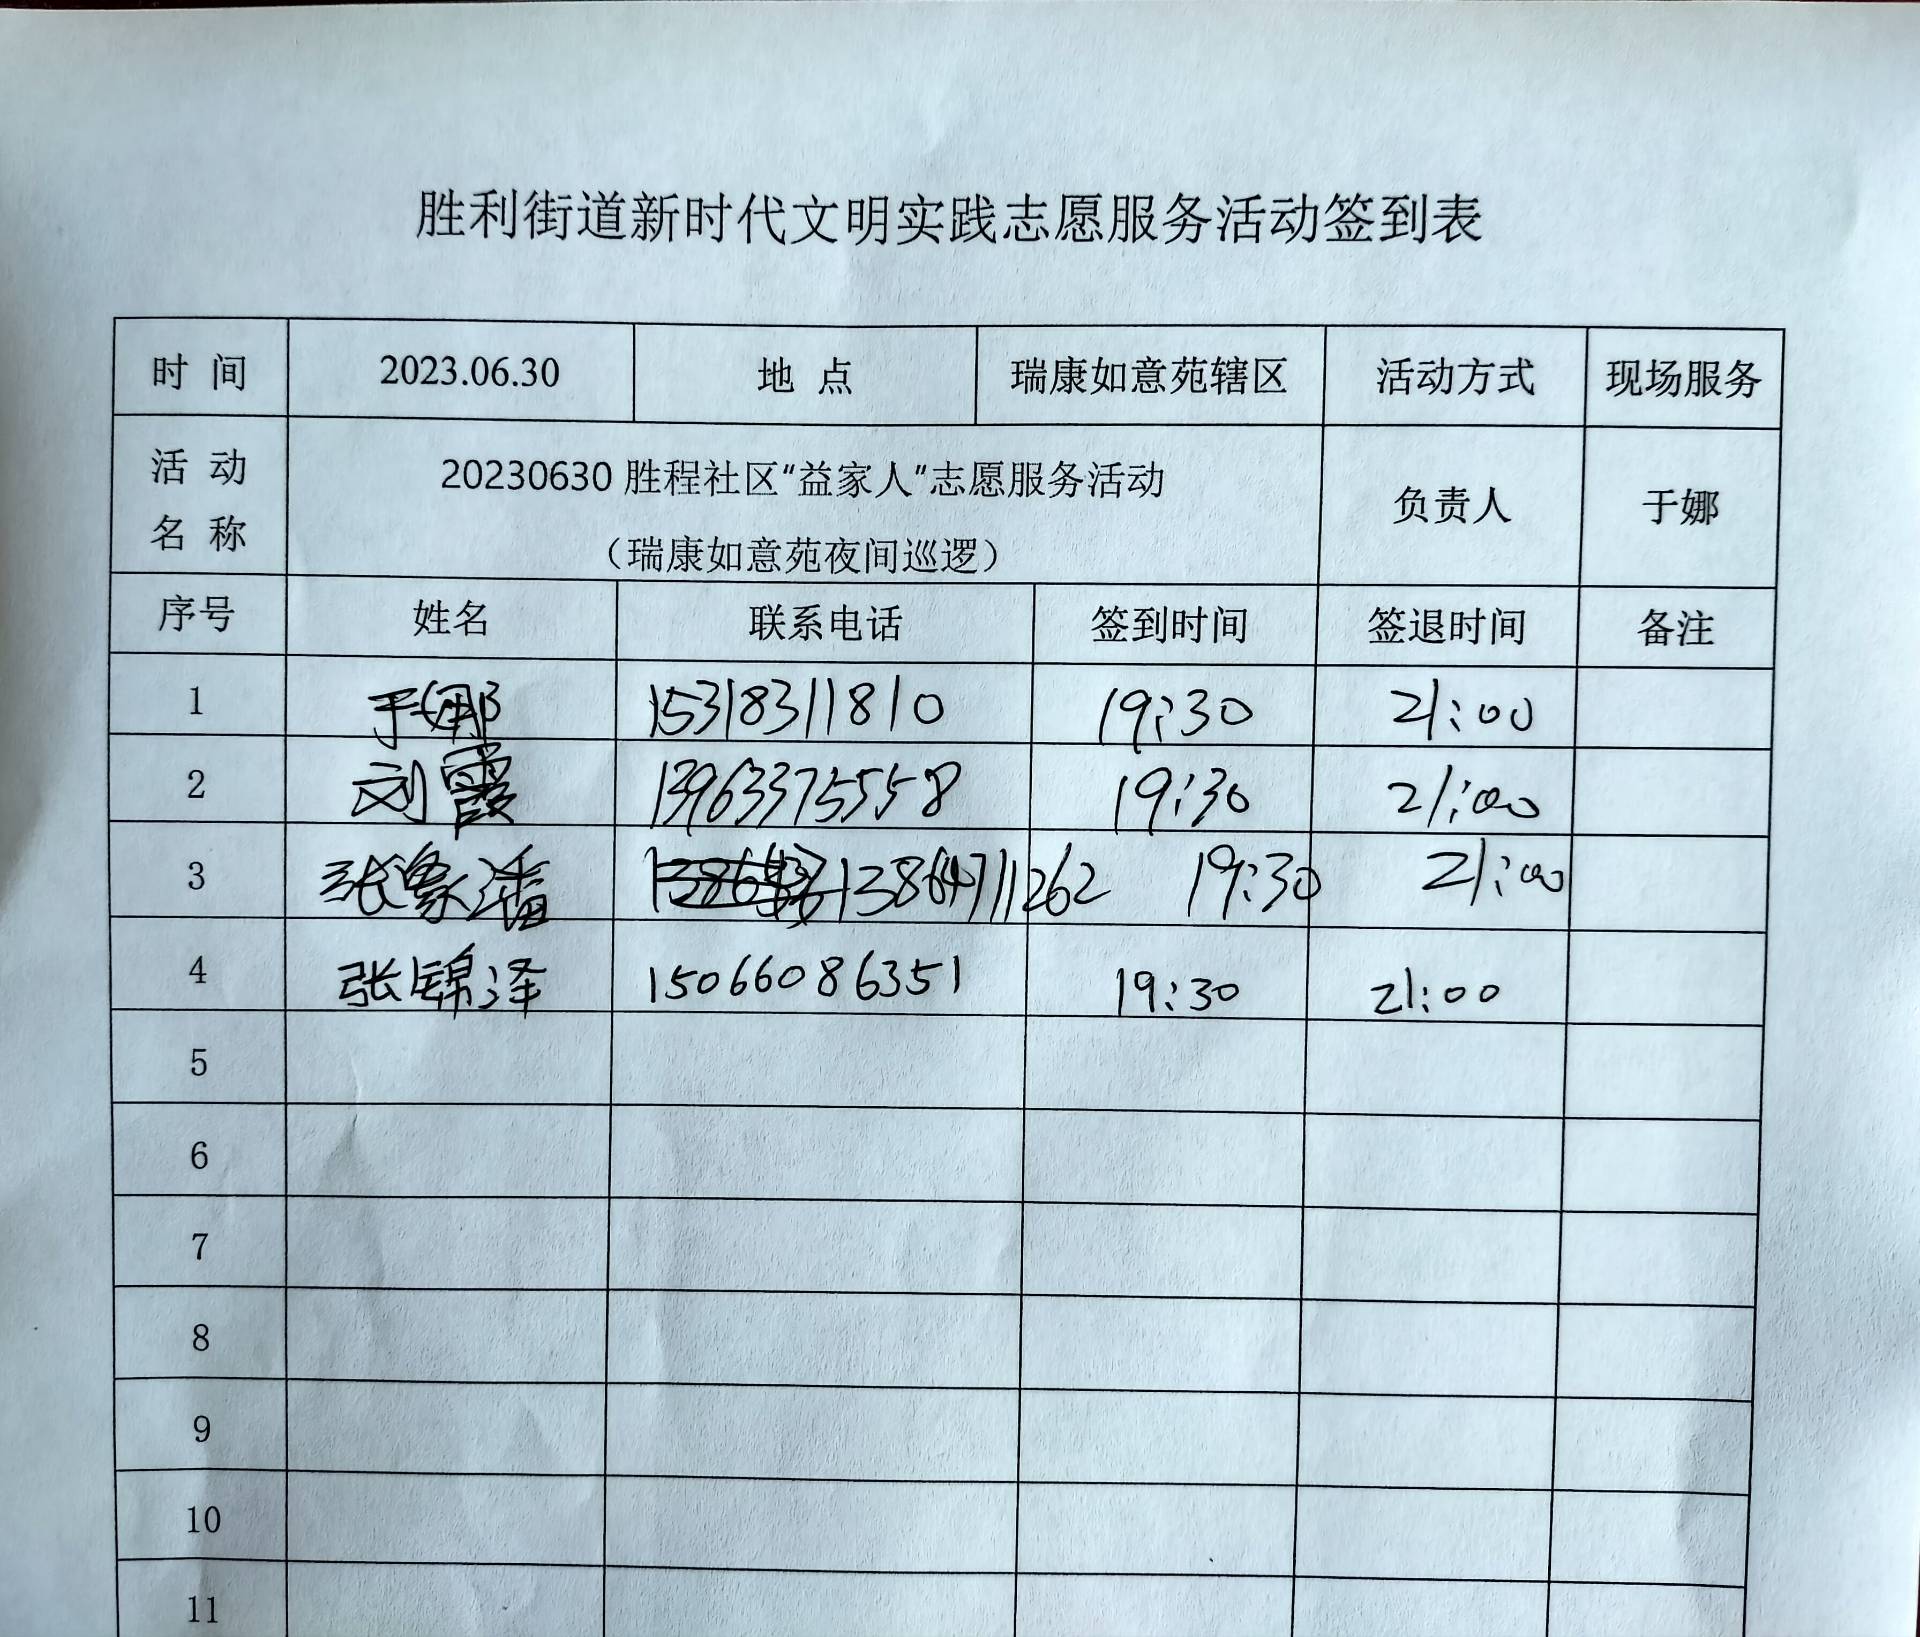 胜利街道新时代文明实践志愿服务活动签到表
时 间 2023.06.30 地 点 瑞康如意苑辖区 活动方式 现场服务
活 动
名 称
20230630 胜程社区“益家人”志愿服务活动
（瑞康如意苑夜间巡逻）
负责人 于娜
序号 姓名 联系电话 签到时间 签退时间 备注
1 于娜 15318311810 19:30 21:00
2 刘霞 13963375558 19:30 21:00
3 张 13864711262 19:30 21:00
4 张锦泽 15066086351 19:30 21:00
5
6
7
8
9
10
11